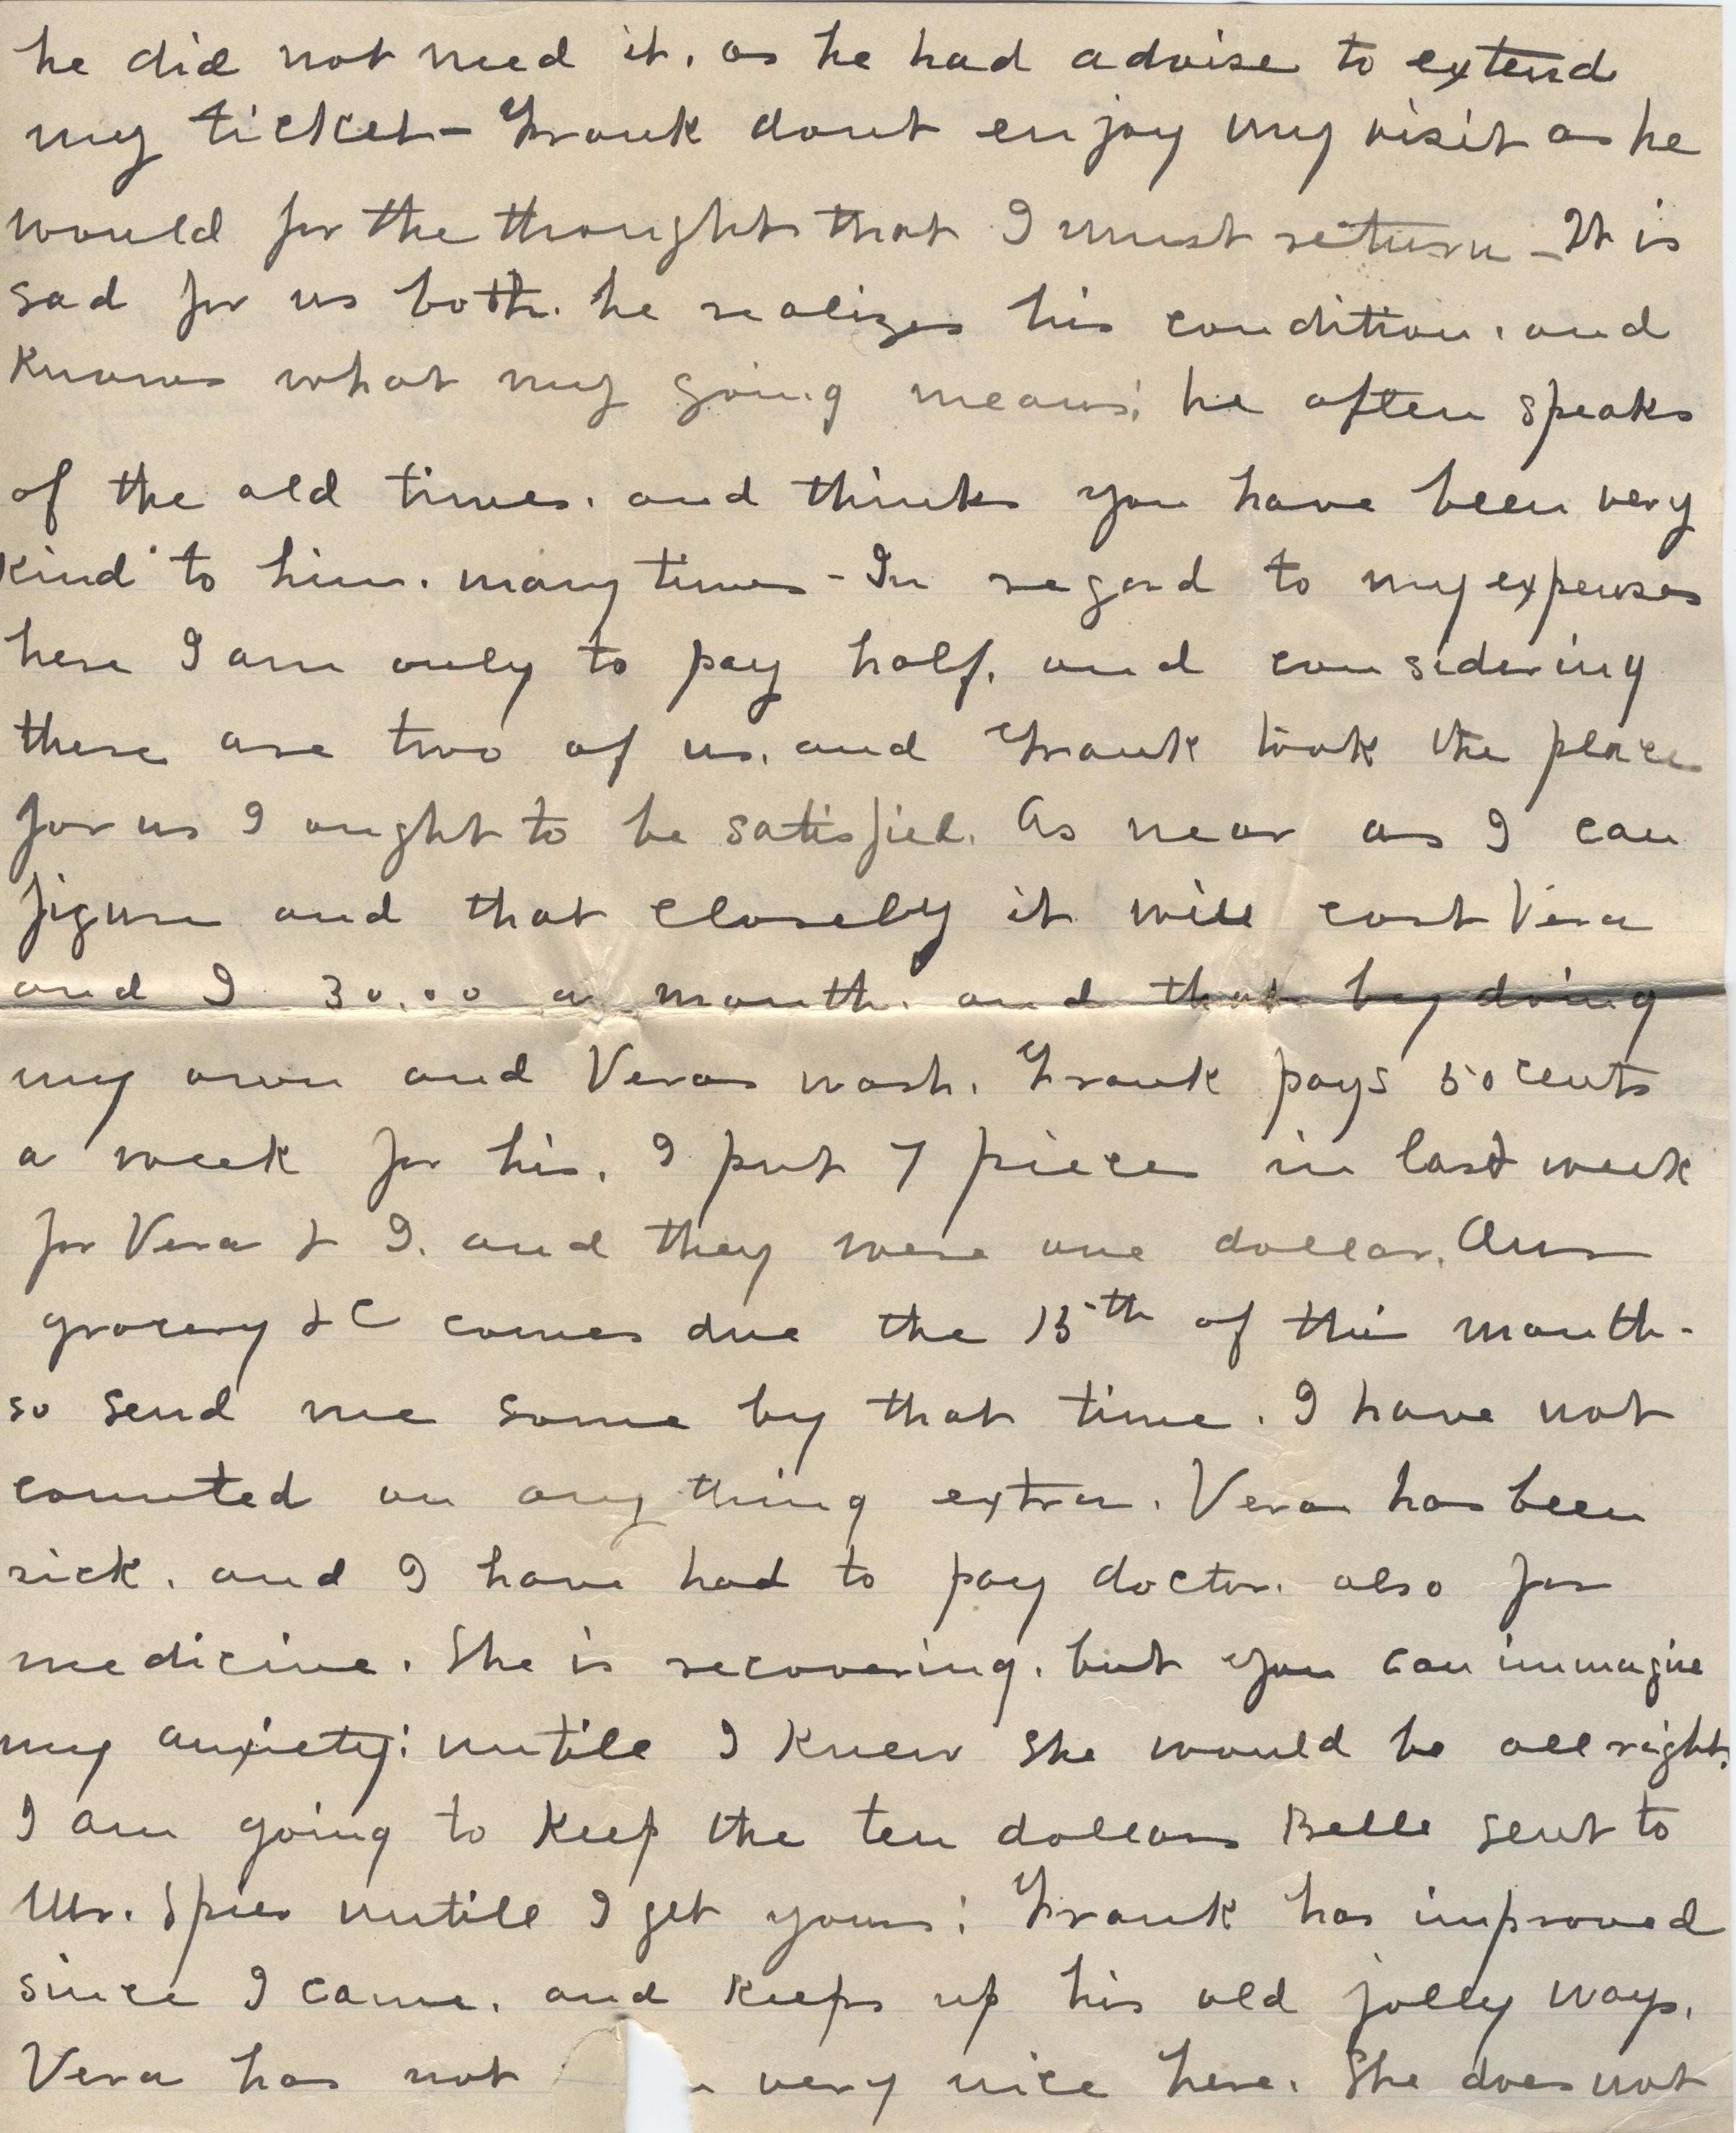 he did not need it. as he had advise to extend
my ticket - Frank dont enjoy my visit as he
would for the thought that I must return - It is
sad for us both. he realizes his condition. and
Knows what my going means; he often speaks
of the old times. and thinks you have been very
Kind to him. many times - In regard to my expenses
here I am only to pay half. and considering
there are two of us. and Frank took the place
for us I ought to be satisfied. As near as I can
figure and that closely it will cost Vera
and I 30.00 a month. and that by doing
my own and Veras wash. Frank pays 50 cents
a week for his. I put 7 pieces in last week
for Vera & I. and they were one dollar. Our
grocery &C comes due the 15th of this month -
so send me some by that time. I have not
counted on any thing extra. Vera has been
sick. and I have had to pay doctor. also for
medicine. She is recovering. but you can immagine
my anxiety; untile I Knew she would be all right.
I am going to Keep the ten dollars Belle sent to
Mr. Spier untill I get yours; Frank has improved
since I came. and Keeps up his old jolly ways.
Vera has not very nice here. She does not